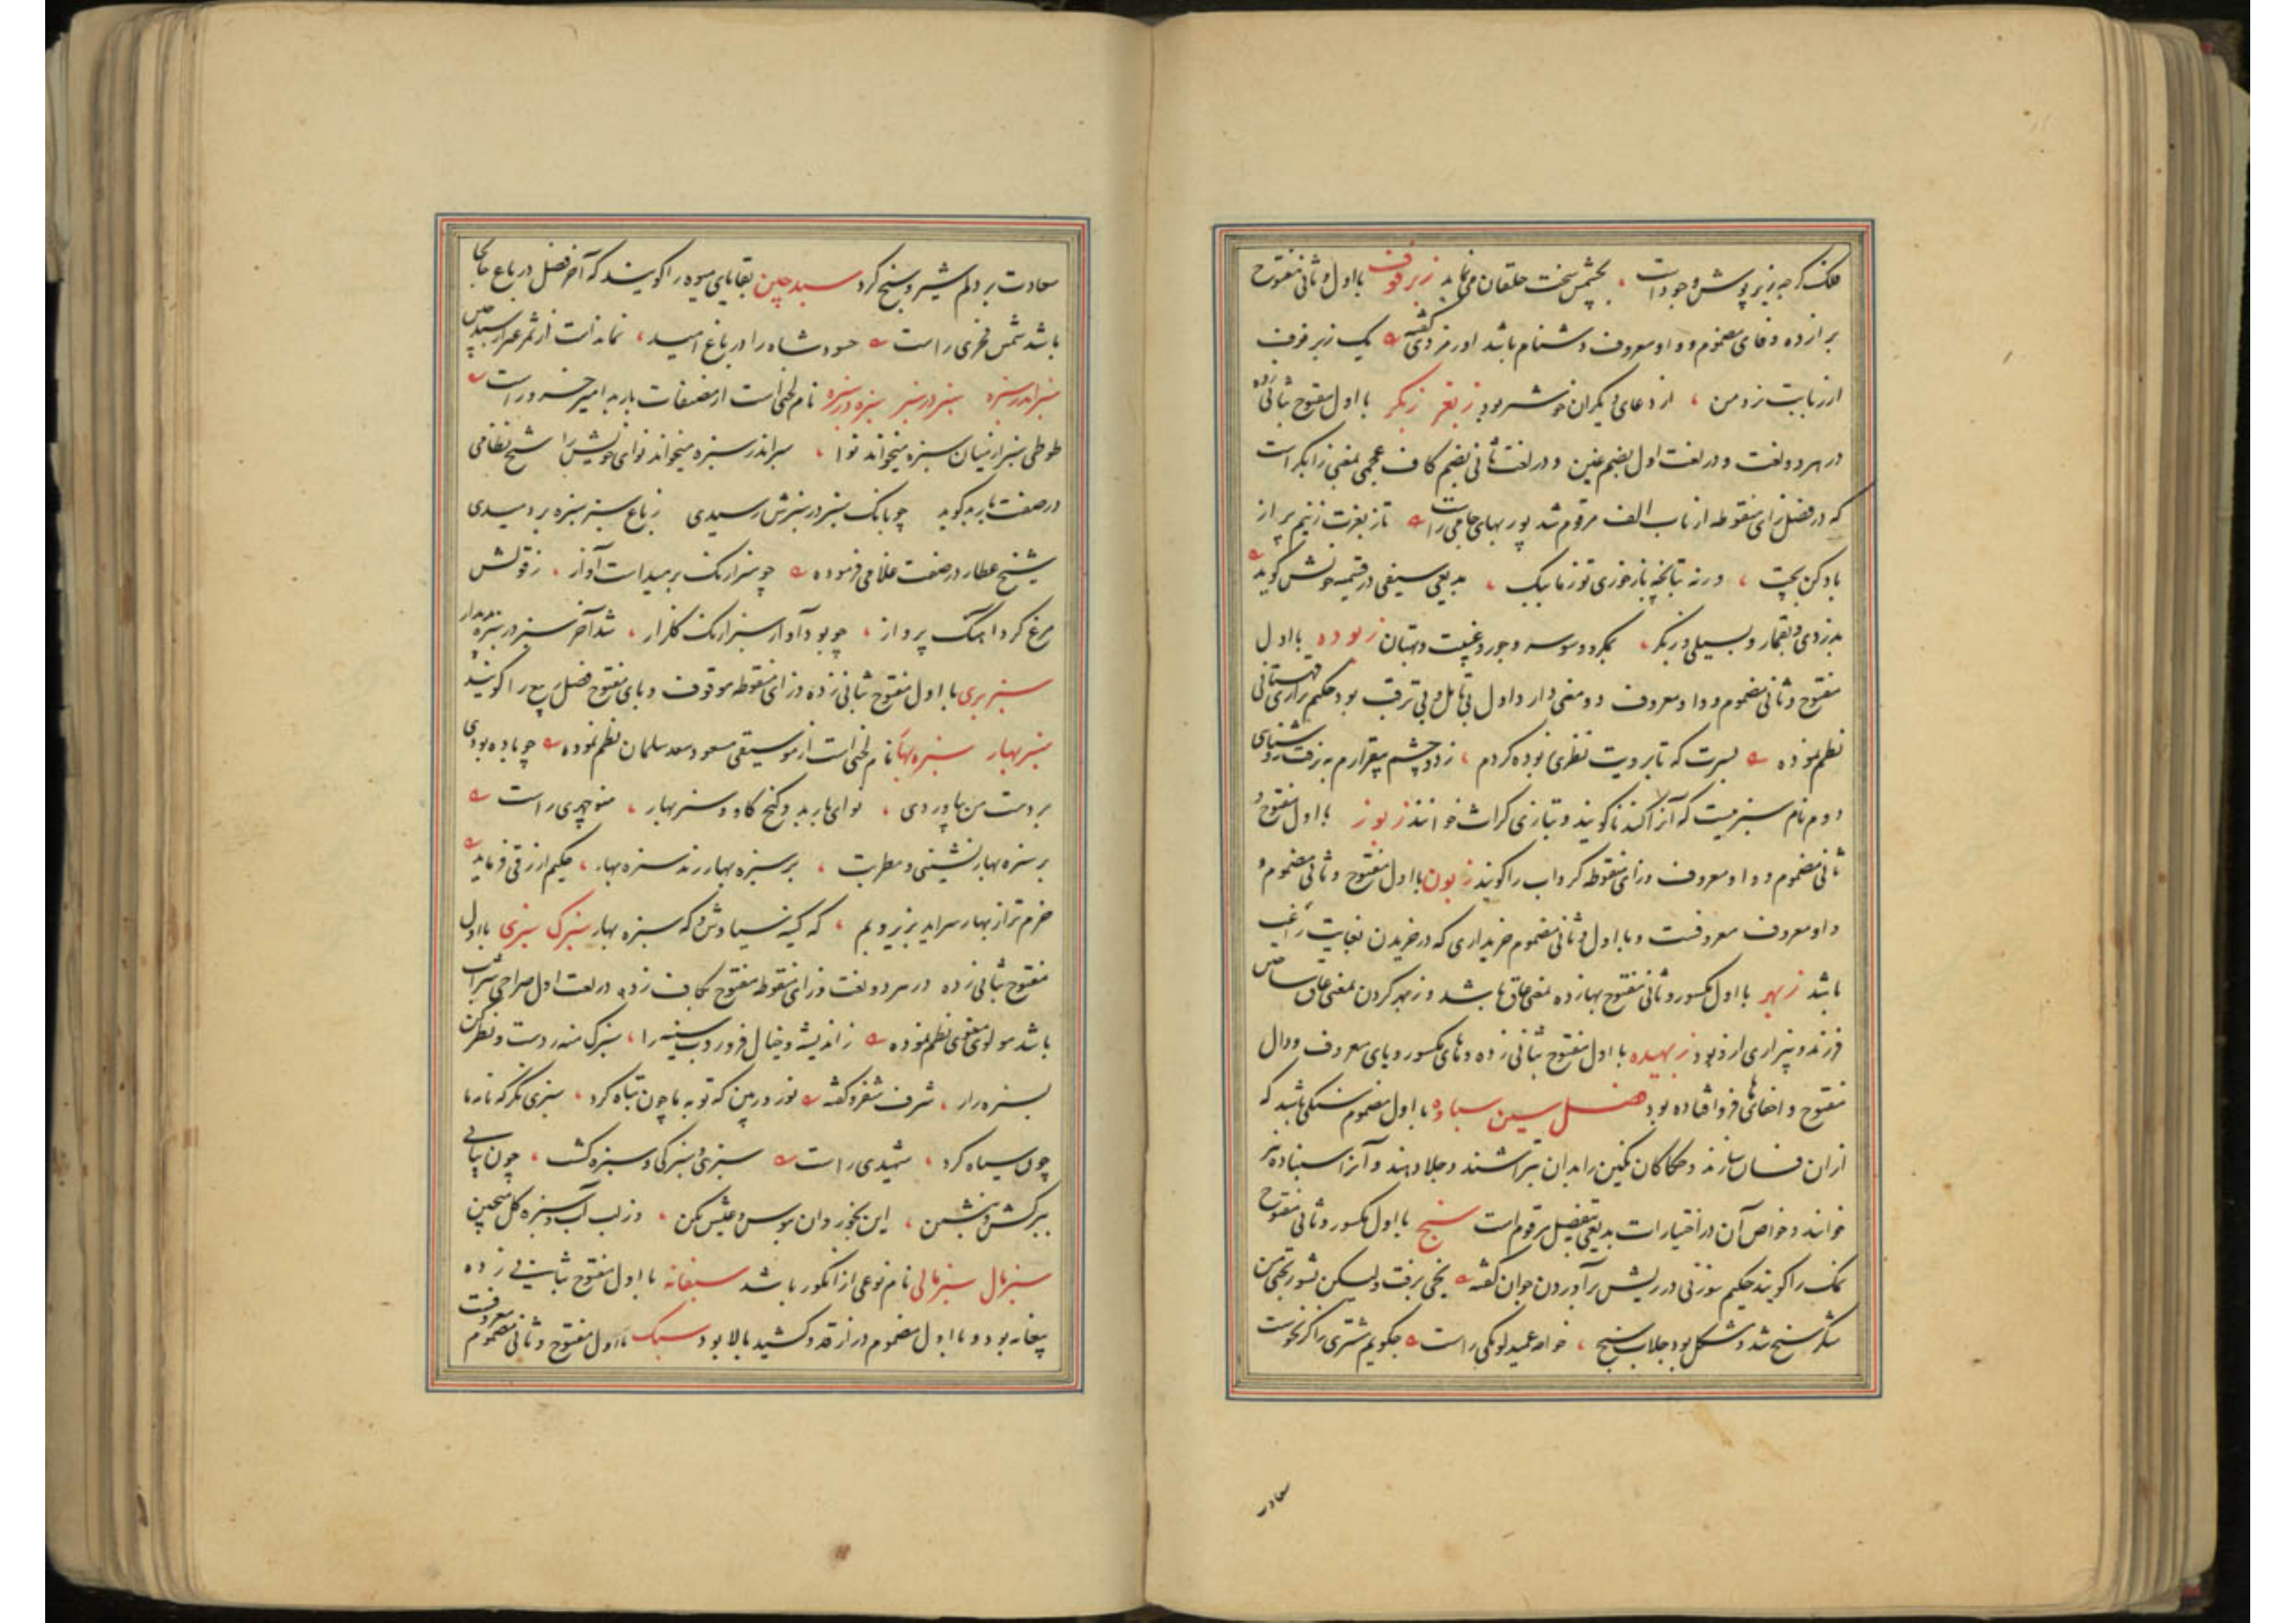 فلک کرچه زبر پوش وجود است ، بچشم سخت خلقان می نماید زبرفوف با اول و ثانی مفتوح
برا زده و فای مضموم و واو معروف دشنام باشد اورمزدی گفته یک زبرفوف
از زبانت زد من ، از دعای دیگران خوشتر بود زبغر زبگر با اول مفتوح بثانی زده
در هر دو لغت و در لغت اول بضم غین و در لغت ثانی بضم کاف عجمی بمعنی زابگر است
که در فصل زای منقوطه از باب الف مرقوم شد پور بهای جامی راست تا زبغرت زنیم پر از
باد کن بچت ، ورنه تپانچه باز خوری تو ز ما بیک ، بدیعی سیفی در قسمیه خودش گوید
بدزدی و بقمار و بسیلی و زبگر ، بمکر و وسوسه و جور و غیبت و بهتان زبوده با اول
مفتوح و ثانی مضموم و واو معروف دو معنی دارد اول بی تامل و بی ترقب بود حکیم نزاری قهستانی
نظم نموده بسرت که تا برویت نظری زبوده کردم ، ز دو چشم بیقرارم برفت روشنایی
دوم نام سبزیست که آنرا گندنا گویند و بتازی کراث خوانند زبوز با اول مفتوح و
ثانی مضموم و واو معروف و زای منقوطه گرداب را گویند زبون با اول مفتوح و ثانی مضموم و
واو معروف معروفست و با اول و ثانی مضموم خریداری که در خریدن بغایت راغب
باشد زبهر با اول مکسور و ثانی مفتوح بهازده بمعنی عاق باشد و زبهر کردن بمعنی عاق ساختن
فرزند و بیزاری از و بود زبهیده با اول مفتوح بثانی زده و های مکسور و یای معروف و دال
مفتوح و اخفای ها فرو افتاده بود فصل سین سباده با اول مضموم سنگی باشد که
از ان فسان سازند و حکاکان نگین را بدان بتراشند و جلا دهند و آنرا سنباده نیز
خوانند و خواص آن در اختیارات بدیعی بتفصیل مرقوم است سبخ با اول مکسور و ثانی مفتوح
نمک را گویند حکیم سوزنی در ریش برآوردن جوان گفته یخی برفت ولیکن بشوربختی من
شکر سبخ شد و مشکل بود جلاب سبخ ، خواجه عمید لویکی راست چگویم مشتری را کز نحوست
سعادت
سعادت بر دلم شیر و سبخ کرد سبدچین بقایای میوه را گویند که آخر فصل در باغ جابجا
باشد شمس فخری راست حسود شاه را در باغ امید ، نماندست از ثمر غیر از سبدچین
سبز اندر سبزه سبز در سبز سبزه در سبزه نام لحنی است از مصنفات باربد امیر خسرو راست
طوطی سبز از میان سبزه میخواند نوا ، سبز اندر سبزه میخواند نوای خویش را شیخ نظامی
در صفت باربد گوید چو بانگ سبز در سبزش رسیدی ز باغ سبز سبزه بر دمیدی
شیخ عطار در صفت غلامی فرموده چو سبزارنگ بر میداشت آواز ، ز قولش
مرغ کرد اهنگ پرواز ، چو بود آواز سبزارنگ کلزار ، شد آخر سبز در سبزه پدیدار
سبزبری با اول مفتوح بثانی زده و زای منقوطه موقوف و بای مفتوح فصل ربیع را گویند
سبز بهار سبزه بهار نام لحنی است از موسیقی مسعود سعد سلمان نظم نموده چو باده بودی
بر دست من بیاوردی ، نوای باربد و کنج کاو و سبز بهار ، منوچهری راست
بر سبزه بهار نشینی و مطربت ، بر سبزه بهار زند سبزه بهار ، حکیم ازرقی فرماید
خرم تر از بهار سراید بزیر و بم ، که کین سیاوش و که سبزه بهار سبزک سبزی با اول
مفتوح بثانی زده در هر دو لغت و زای منقوطه مفتوح بکاف زده در لغت اول صراحی شراب
باشد مولوی معنوی نظم نموده ز اندیشه و خیال فرو روب سینه را ، سبزک منه ز دست و نظر کن
بسبزه زار ، شرف شفروه گفته نوروز بین که توبه ما چون تباه کرد ، سبزی نگر که نامه ما
چون سیاه کرد ، شهیدی راست سبزی و سبزکی و سبزه کشت ، چون بیابی
ببر کش و بنشین ، این بخور وان ببوس و عیش بکن ، وز لب آب و سبزه گل میچین
سبزمال سبزمالی نام نوعی از انگور باشد سبغانه با اول مفتوح بثانی زده
پیغانه بود و با اول مضموم دراز قد و کشیده بالا بود سبک با اول مفتوح و ثانی مضموم معروفست